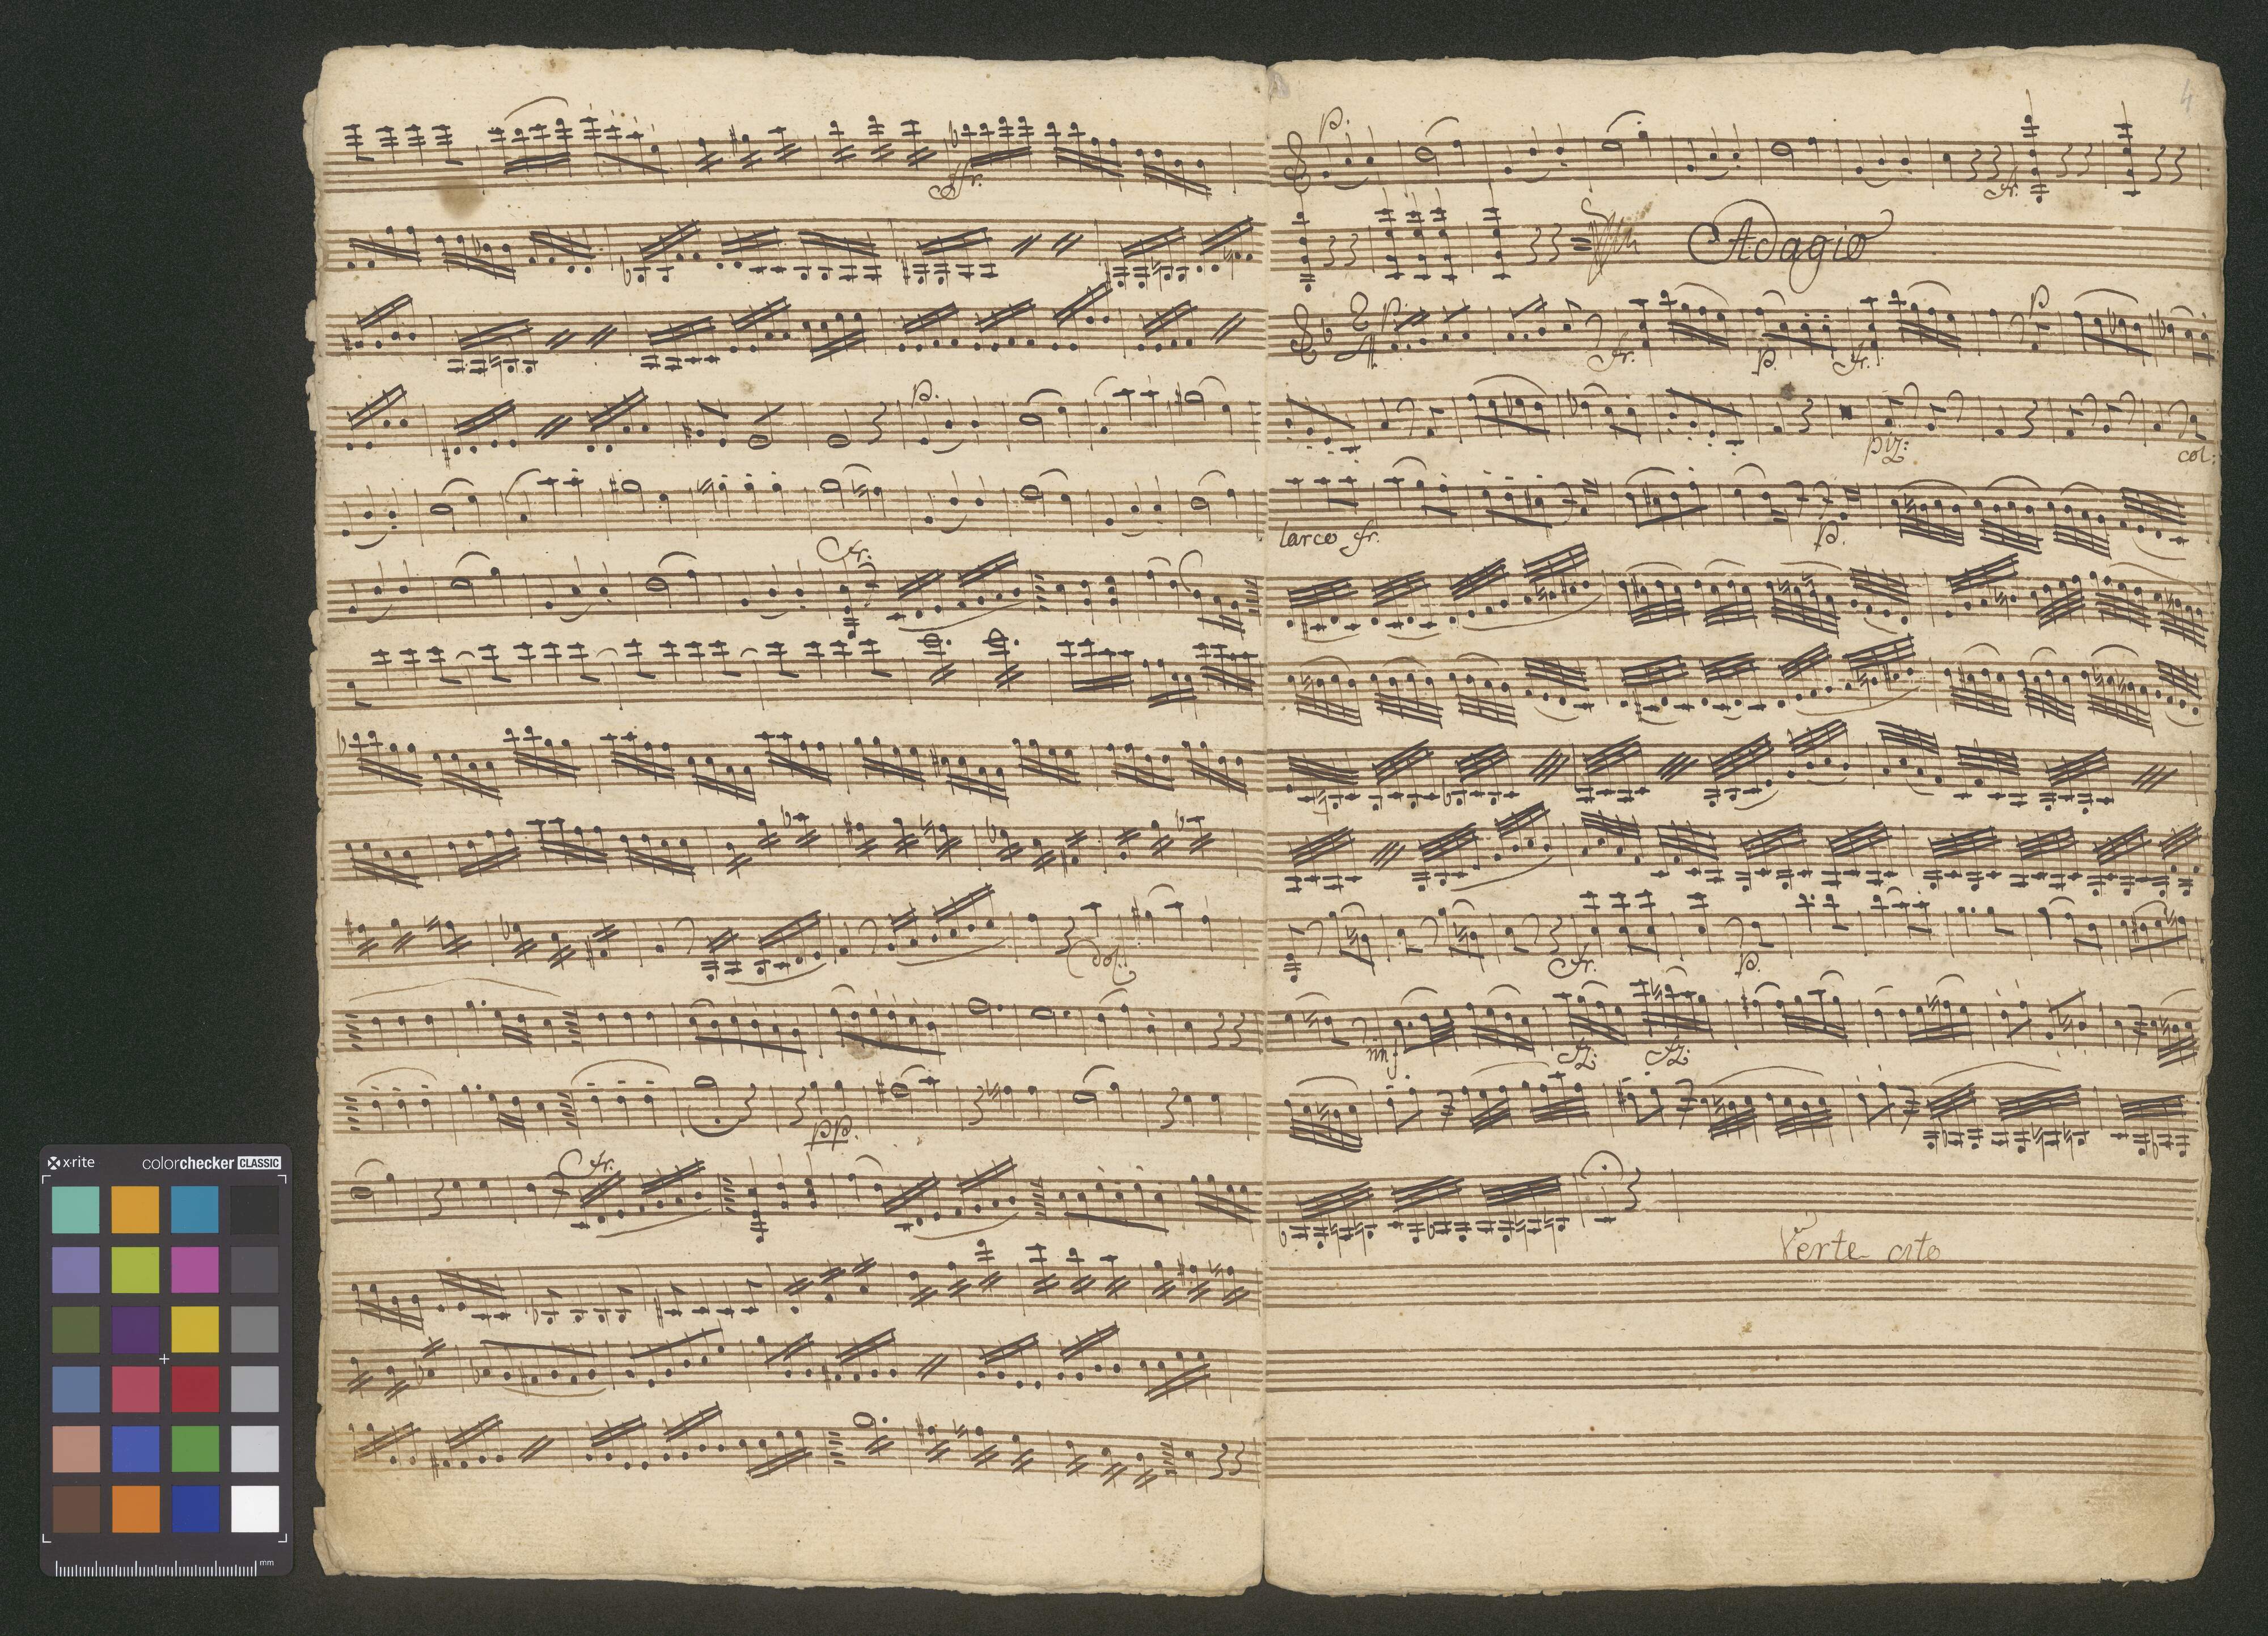 x-rite colorchecker CLASSIC
mm
ffr.
p.
fr.
dol.
pp.
fr.
4
p.
fr.
Adagio
p.
fr. p. fr. p
piz: col:
larco fr. p.
fr. p.
fz: fz:
Verte cito